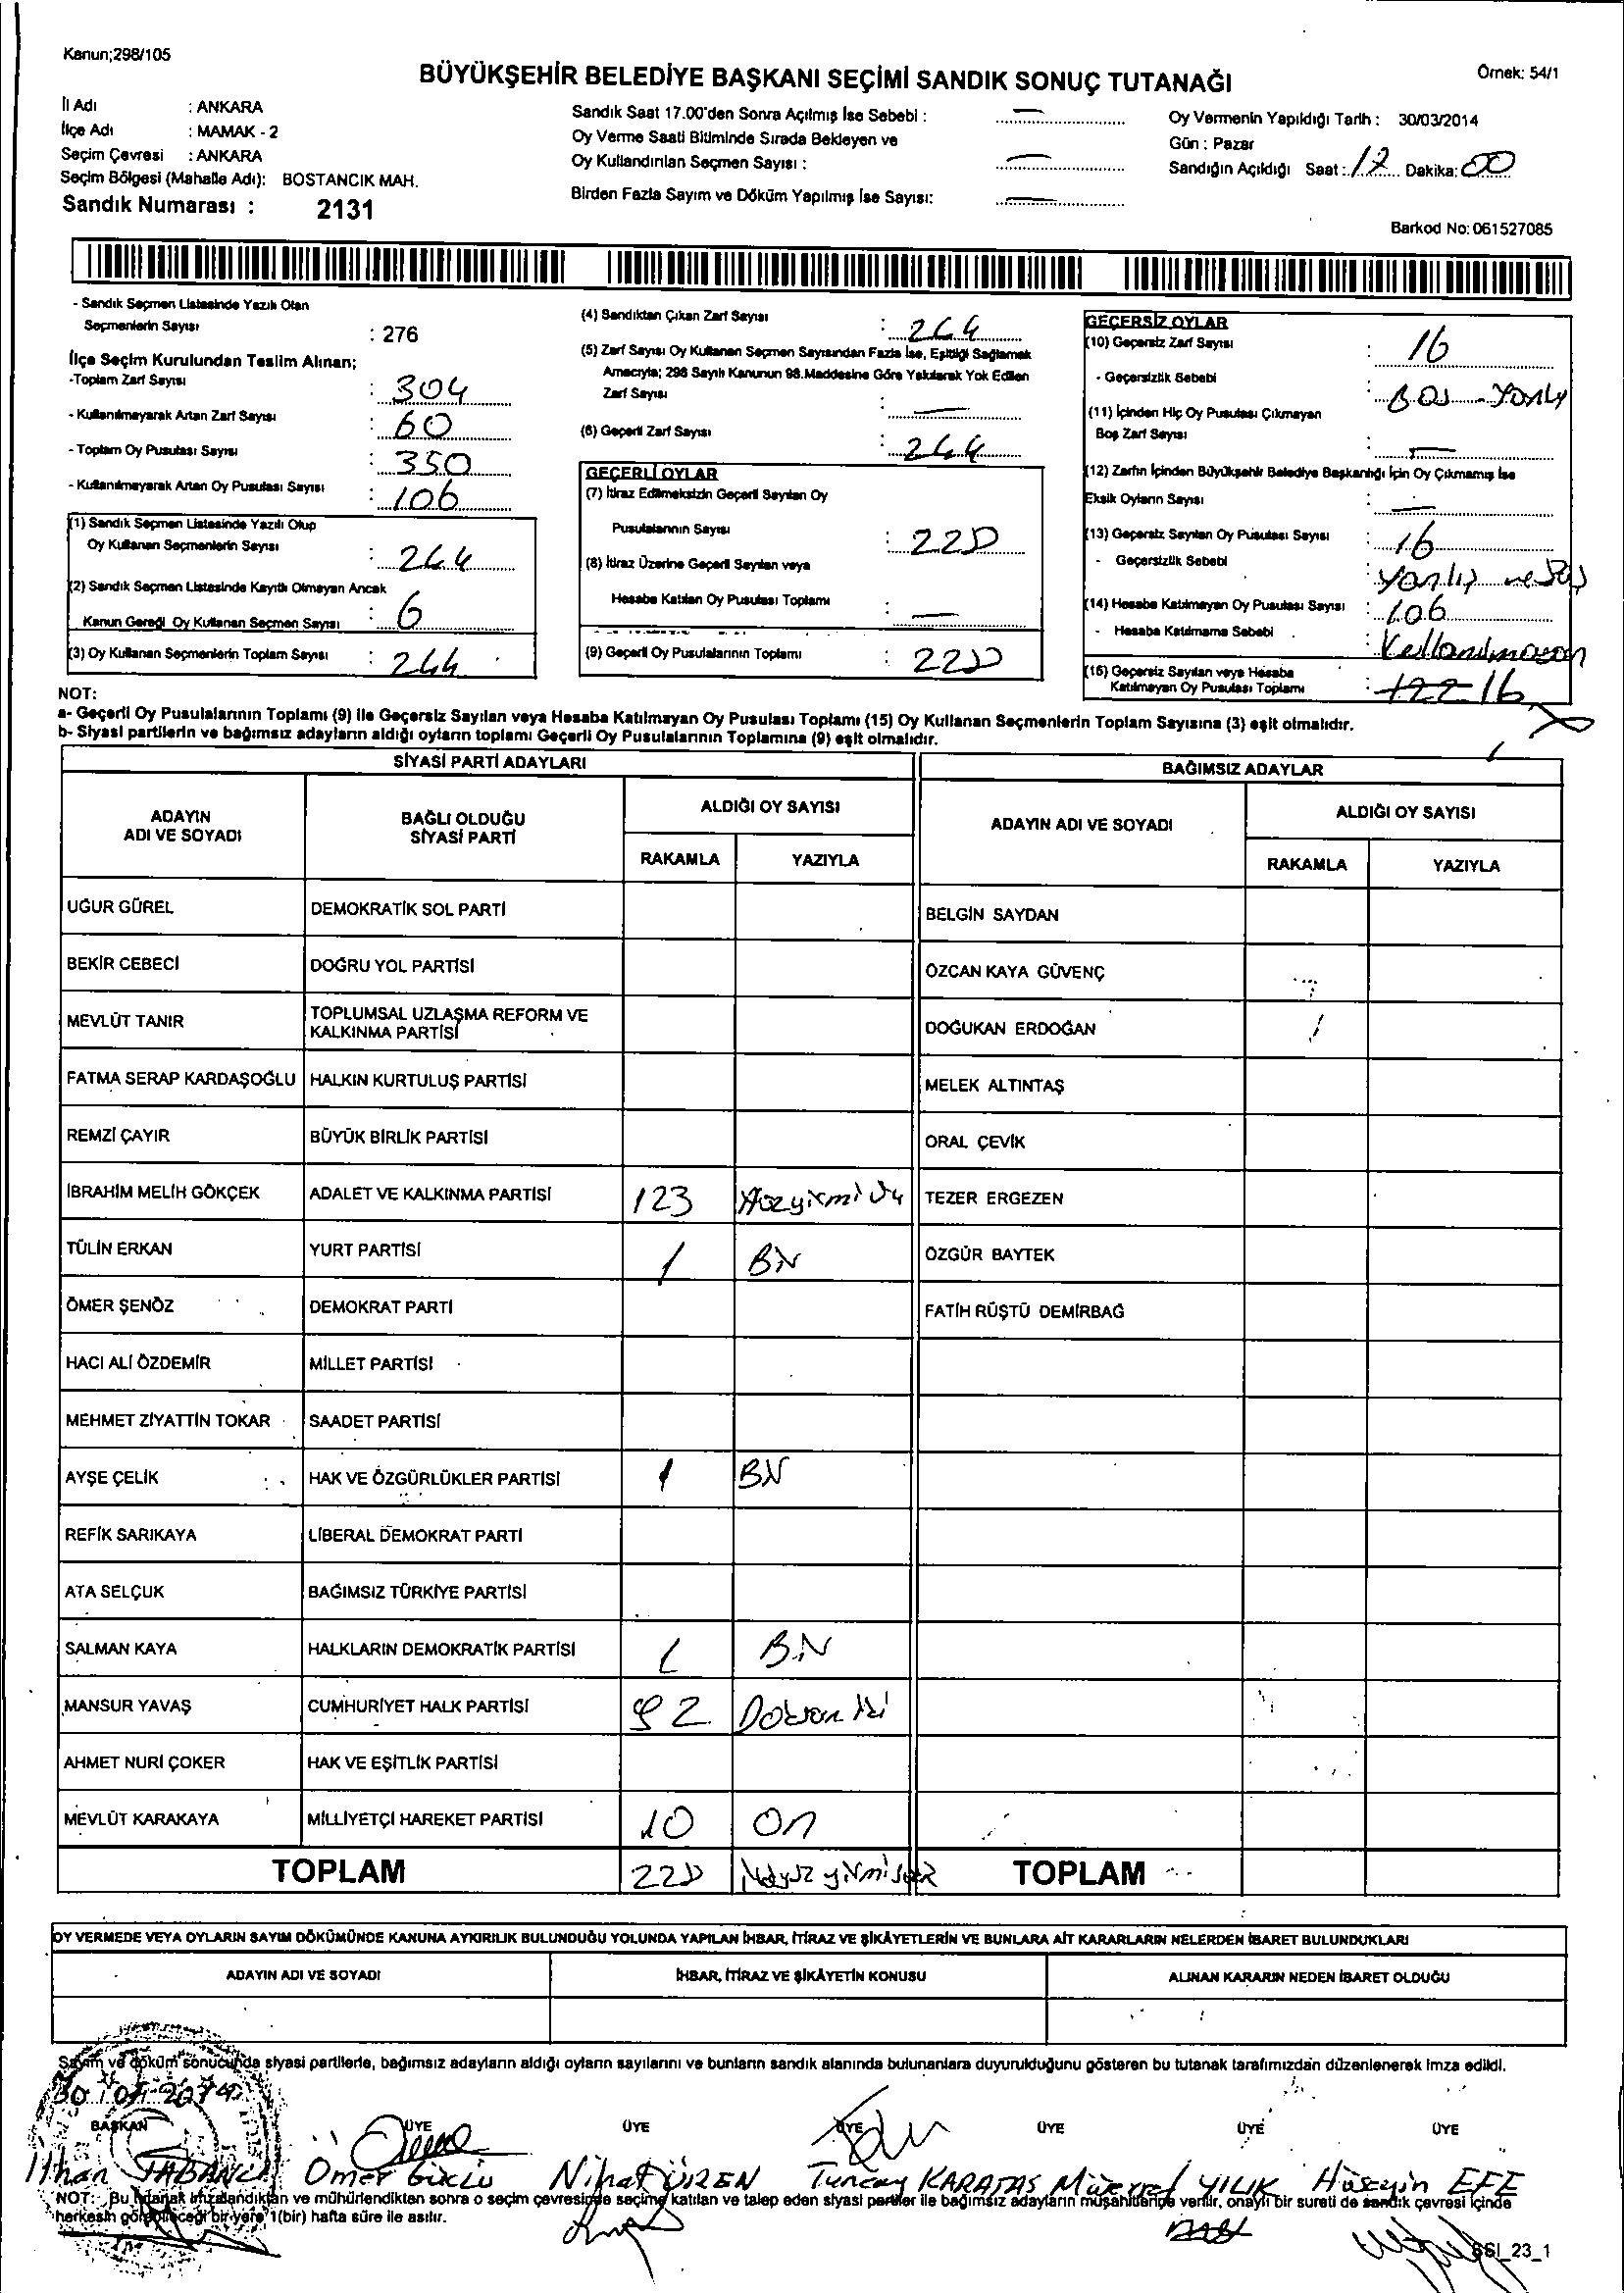 Kanun;298/105
BÜYÜKŞEHİR BELEDİYE BAŞKANI SEÇİMİ SANDIK SONUÇ TUTANAĞI
Örnek: 54/1
İl Adı : ANKARA
İlçe Adı : MAMAK - 2
Seçim Çevresi : ANKARA
Seçim Bölgesi (Mahalle Adı): BOSTANCIK MAH.
Sandık Numarası : 2131
Sandık Saat 17.00'den Sonra Açılmış İse Sebebi : —
Oy Verme Saati Bitiminde Sırada Bekleyen ve
Oy Kullandırılan Seçmen Sayısı : —
Birden Fazla Sayım ve Döküm Yapılmış İse Sayısı: —
Oy Vermenin Yapıldığı Tarih : 30/03/2014
Gün : Pazar
Sandığın Açıldığı Saat : 17 Dakika: 00
Barkod No: 061527085
- Sandık Seçmen Listesinde Yazılı Olan
Seçmenlerin Sayısı : 276
İlçe Seçim Kurulundan Teslim Alınan;
-Toplam Zarf Sayısı : 304
- Kullanılmayarak Artan Zarf Sayısı : 60
- Toplam Oy Pusulası Sayısı : 350
- Kullanılmayarak Artan Oy Pusulası Sayısı : 106
(1) Sandık Seçmen Listesinde Yazılı Olup
Oy Kullanan Seçmenlerin Sayısı : 244
(2) Sandık Seçmen Listesinde Kayıtlı Olmayan Ancak
Kanun Gereği Oy Kullanan Seçmen Sayısı : 6
(3) Oy Kullanan Seçmenlerin Toplam Sayısı : 244
(4) Sandıktan Çıkan Zarf Sayısı : 244
(5) Zarf Sayısı Oy Kullanan Seçmen Sayısından Fazla İse, Eşitliği Sağlamak
Amacıyla; 298 Sayılı Kanunun 98.Maddesine Göre Yakılarak Yok Edilen
Zarf Sayısı : —
(6) Geçerli Zarf Sayısı : 244
GEÇERLİ OYLAR
(7) İtiraz Edilmeksizin Geçerli Sayılan Oy
Pusulalarının Sayısı : 228
(8) İtiraz Üzerine Geçerli Sayılan veya
Hesaba Katılan Oy Pusulası Toplamı : —
(9) Geçerli Oy Pusulalarının Toplamı : 228
GEÇERSİZ OYLAR
(10) Geçersiz Zarf Sayısı : 16
- Geçersizlik Sebebi :
(11) İçinden Hiç Oy Pusulası Çıkmayan
Boş Zarf Sayısı : —
(12) Zarfın İçinden Büyükşehir Belediye Başkanlığı İçin Oy Çıkmamış İse
Eksik Oyların Sayısı : —
(13) Geçersiz Sayılan Oy Pusulası Sayısı : 16
- Geçersizlik Sebebi : yanlış ve Boş
(14) Hesaba Katılmayan Oy Pusulası Sayısı : 106
- Hesaba Katılmama Sebebi : Kullanılmayan
(15) Geçersiz Sayılan veya Hesaba
Katılmayan Oy Pusulası Toplamı : 122 16
NOT:
a- Geçerli Oy Pusulalarının Toplamı (9) ile Geçersiz Sayılan veya Hesaba Katılmayan Oy Pusulası Toplamı (15) Oy Kullanan Seçmenlerin Toplam Sayısına (3) eşit olmalıdır.
b- Siyasi partilerin ve bağımsız adayların aldığı oyların toplamı Geçerli Oy Pusulalarının Toplamına (9) eşit olmalıdır.
SİYASİ PARTİ ADAYLARI
BAĞIMSIZ ADAYLAR
ADAYIN ADI VE SOYADI
BAĞLI OLDUĞU SİYASİ PARTİ
ALDIĞI OY SAYISI
RAKAMLA YAZIYLA
ADAYIN ADI VE SOYADI
ALDIĞI OY SAYISI
RAKAMLA YAZIYLA
UĞUR GÜREL DEMOKRATİK SOL PARTİ BELGİN SAYDAN
BEKİR CEBECİ DOĞRU YOL PARTİSİ ÖZCAN KAYA GÜVENÇ
MEVLÜT TANIR TOPLUMSAL UZLAŞMA REFORM VE KALKINMA PARTİSİ DOĞUKAN ERDOĞAN
FATMA SERAP KARDAŞOĞLU HALKIN KURTULUŞ PARTİSİ MELEK ALTINTAŞ
REMZİ ÇAYIR BÜYÜK BİRLİK PARTİSİ ORAL ÇEVİK
İBRAHİM MELİH GÖKÇEK ADALET VE KALKINMA PARTİSİ 123 TEZER ERGEZEN
TÜLİN ERKAN YURT PARTİSİ 1 BİR ÖZGÜR BAYTEK
ÖMER ŞENÖZ DEMOKRAT PARTİ FATİH RÜŞTÜ DEMİRBAĞ
HACI ALİ ÖZDEMİR MİLLET PARTİSİ
MEHMET ZİYATTİN TOKAR SAADET PARTİSİ
AYŞE ÇELİK HAK VE ÖZGÜRLÜKLER PARTİSİ 1 BİR
REFİK SARIKAYA LİBERAL DEMOKRAT PARTİ
ATA SELÇUK BAĞIMSIZ TÜRKİYE PARTİSİ
SALMAN KAYA HALKLARIN DEMOKRATİK PARTİSİ 1 BİR
MANSUR YAVAŞ CUMHURİYET HALK PARTİSİ 92 Doksan iki
AHMET NURİ ÇOKER HAK VE EŞİTLİK PARTİSİ
MEVLÜT KARAKAYA MİLLİYETÇİ HAREKET PARTİSİ 10 On
TOPLAM 228 TOPLAM
OY VERMEDE VEYA OYLARIN SAYIM DÖKÜMÜNDE KANUNA AYKIRILIK BULUNDUĞU YOLUNDA YAPILAN İHBAR, İTİRAZ VE ŞİKÂYETLERİN VE BUNLARA AİT KARARLARIN NELERDEN İBARET BULUNDUKLARI
ADAYIN ADI VE SOYADI İHBAR, İTİRAZ VE ŞİKÂYETİN KONUSU ALINAN KARARIN NEDEN İBARET OLDUĞU
Sayım ve döküm sonucunda siyasi partilerle, bağımsız adayların aldığı oyların sayılarını ve bunların sandık alanında bulunanlara duyurulduğunu gösteren bu tutanak tarafımızdan düzenlenerek imza edildi.
BAŞKAN ÜYE ÜYE ÜYE ÜYE ÜYE ÜYE
İlhan Ömer GÜÇLÜ Nihat Tuncay KARATAŞ YILIK Hüseyin EFE
NOT: Bu tutanak imzalandıktan ve mühürlendikten sonra o seçim çevresinde seçime katılan ve talep eden siyasi partiler ile bağımsız adayların müşahitlerine verilir, onaylı bir sureti de sandık çevresi içinde
herkesin görebileceği bir yere 1(bir) hafta süre ile asılır.
SSI_23_1